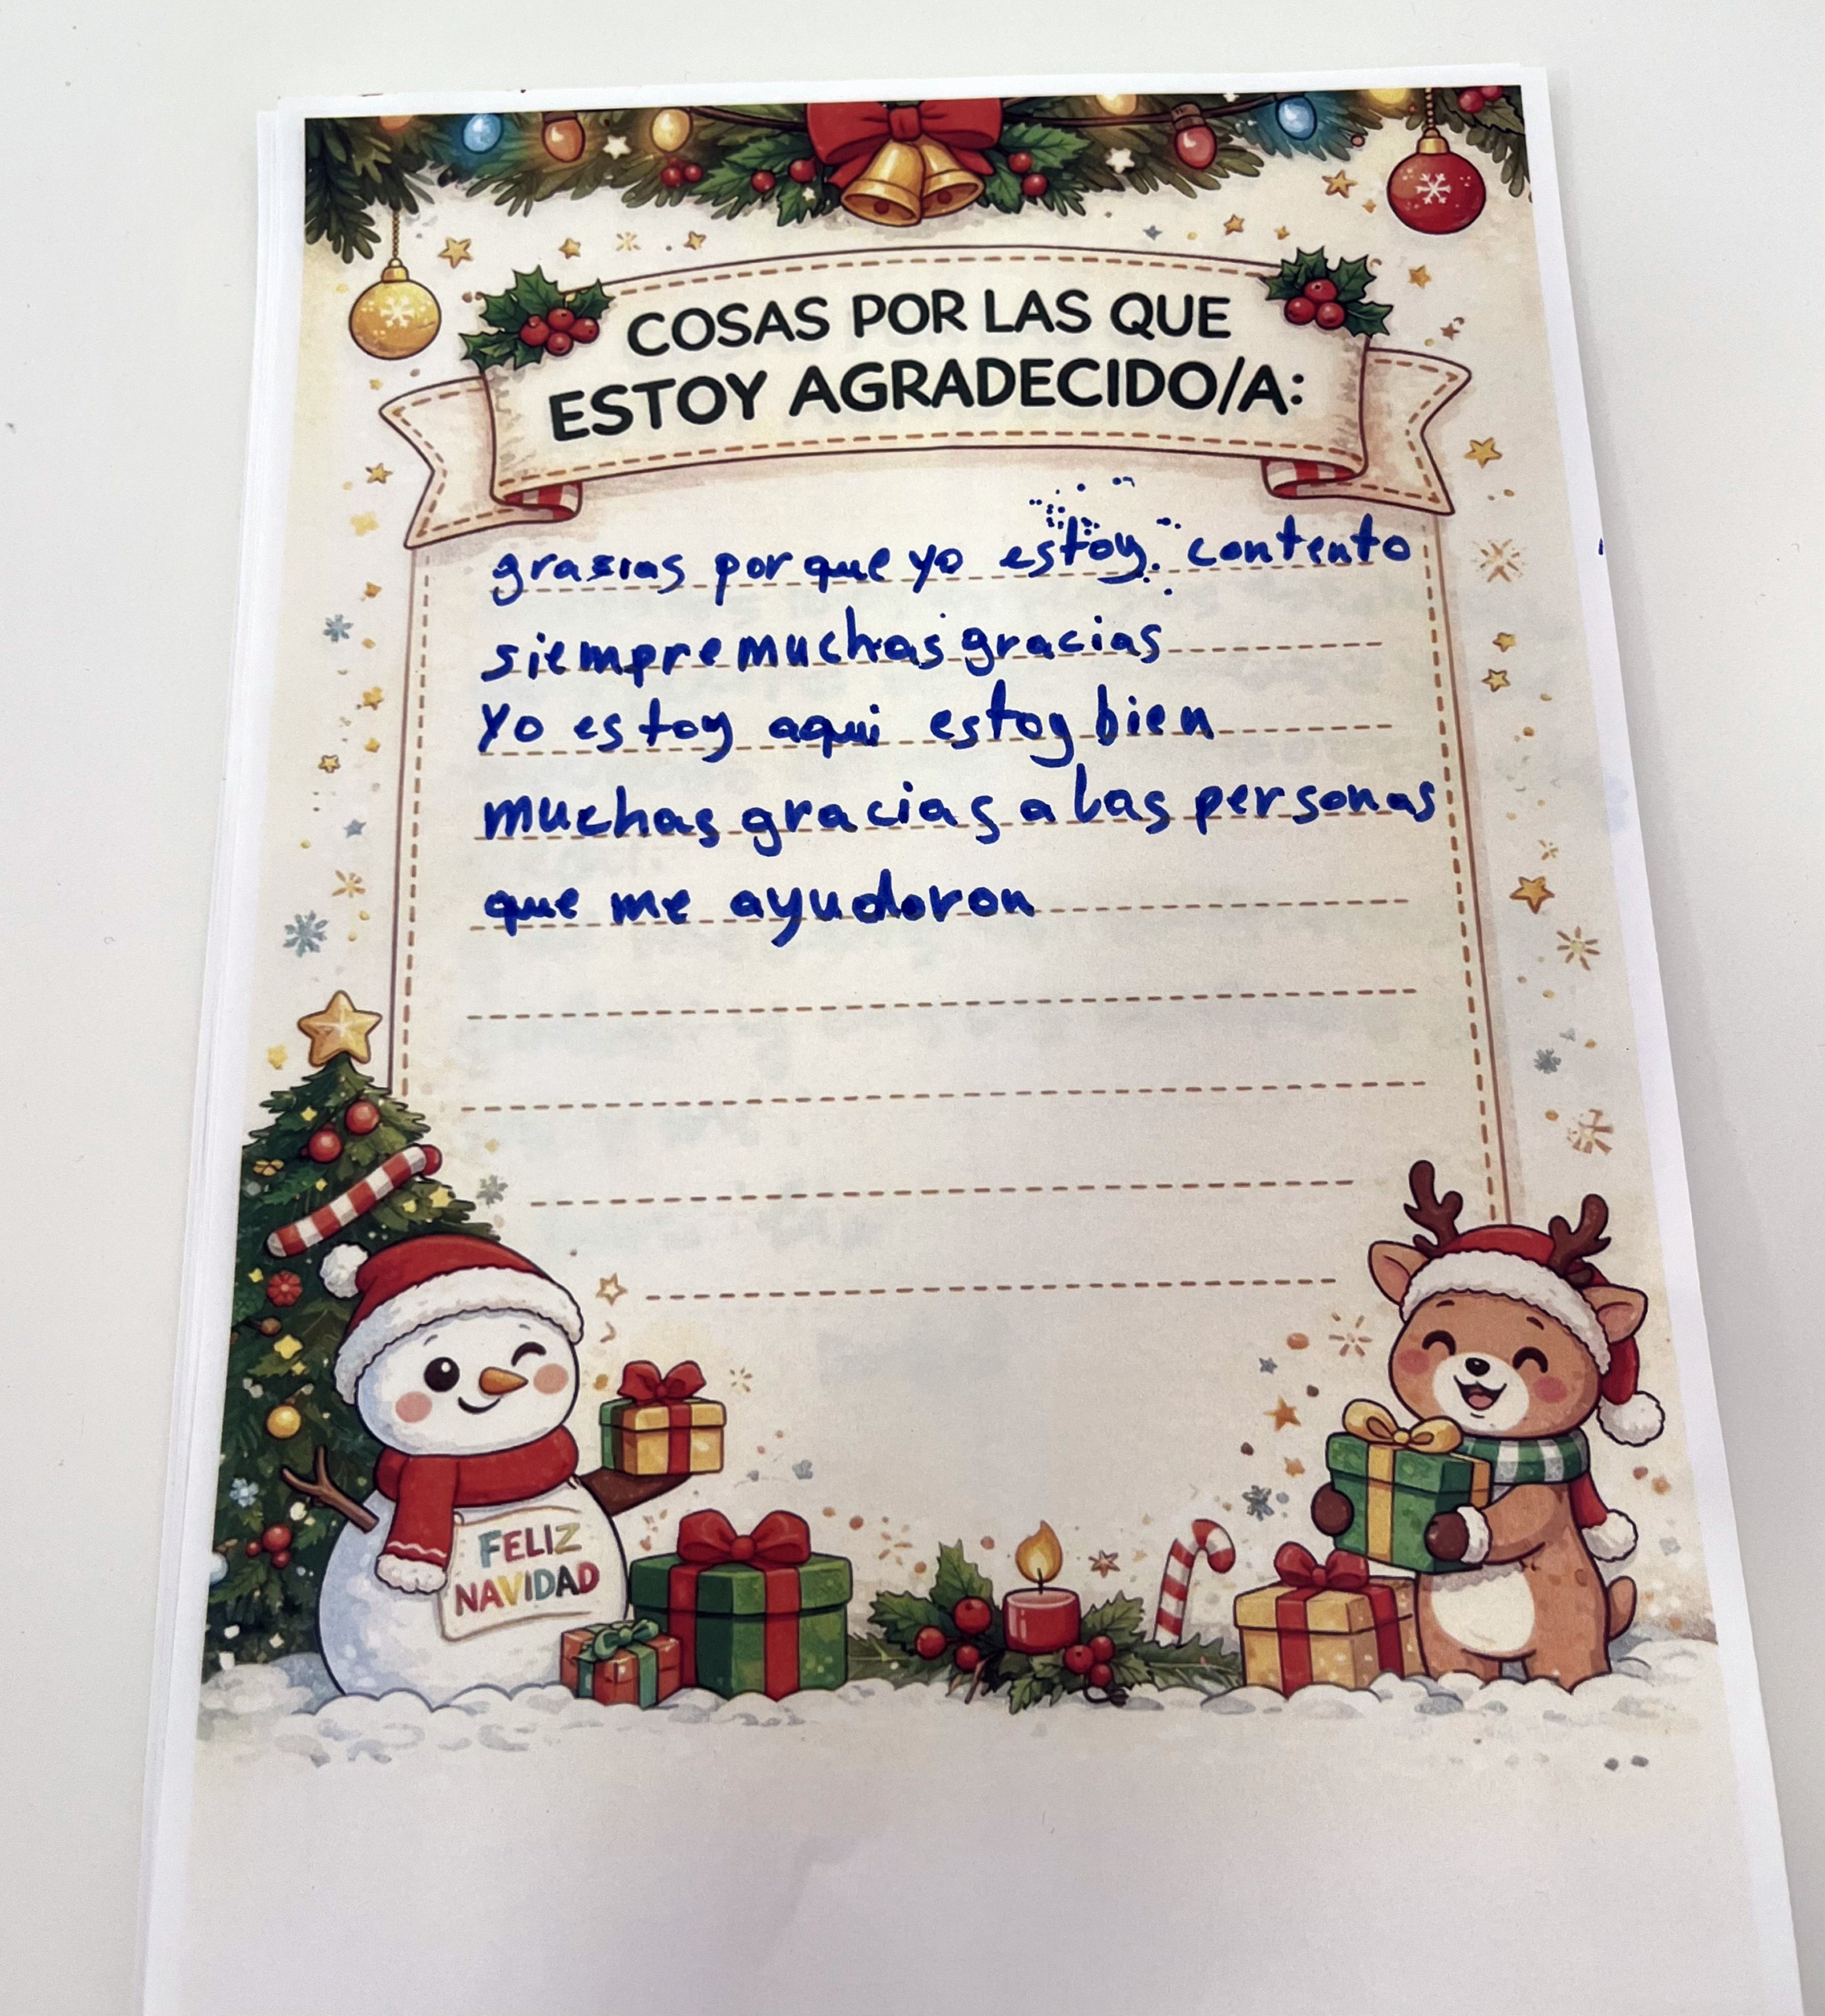 COSAS POR LAS QUE
ESTOY AGRADECIDO/A:
grasias porque yo estoy. contento
siempre muchas gracias
Yo estoy aqui estoy bien
muchas gracias a las personas
que me ayudoron
FELIZ
NAVIDAD